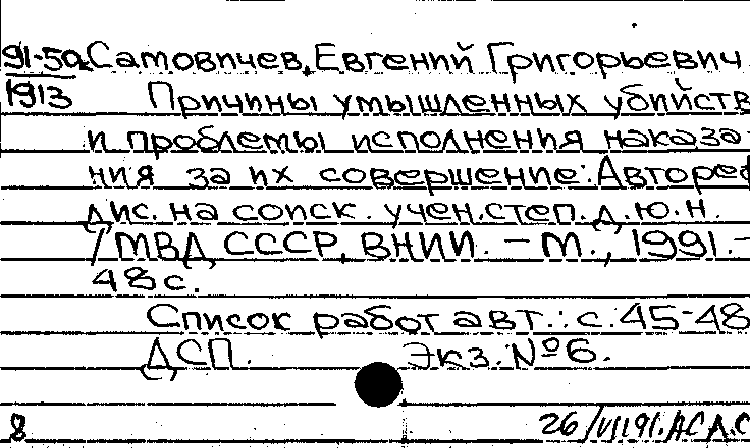 91-50а Самовичев, Евгений Григорьевич
1913 Причины умышленных убийств
и проблемы исполнения наказа-
ния за их совершение: Автореф
дис. на соиск. учен. степ. д.ю.н.
/МВД СССР, ВНИИ. – М., 1991. –
48 с.
Список работ авт.: с. 45-48
ДСП. Экз. №6.
8 26/VII91.